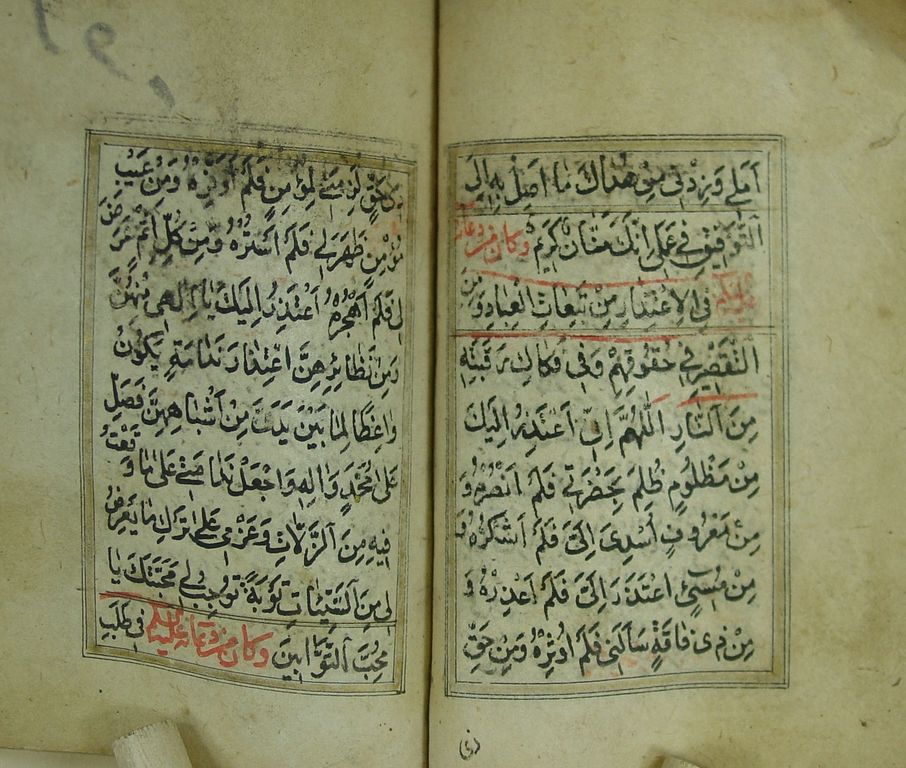 اَمَلِي وَزِدْنِي مِنْ هُدَاكَ مَا اَصِلُ بِهِ اِلَى
التَّوْفِيقِ فِي عَمَلِي اِنَّكَ مَنَّانٌ كَرِيمٌ وَكَانَ مِنْ دُعَائِهِ
عَلَيْهِ السَّلَمُ فِي الْاِعْتِذَارِ مِنْ تَبِعَاتِ الْعِبَادِ وَمِنَ
التَّقْصِيرِ فِي حُقُوقِهِمْ وَفِي فَكَاكِ رَقَبَتِهِ
مِنَ النَّارِ اَللّٰهُمَّ اِنِّي اَعْتَذِرُ اِلَيْكَ
مِنْ مَظْلُومٍ ظُلِمَ بِحَضْرَتِي فَلَمْ اَنْصُرْهُ وَ
مِنْ مَعْرُوفٍ اُسْدِيَ اِلَيَّ فَلَمْ اَشْكُرْهُ وَ
مِنْ مُسِيءٍ اعْتَذَرَ اِلَيَّ فَلَمْ اَعْذِرْهُ وَ
مِنْ ذِي فَاقَةٍ سَاَلَنِي فَلَمْ اُوثِرْهُ وَمِنْ حَقِّ
ذِي حَقٍّ لَزِمَنِي لِمُؤْمِنٍ فَلَمْ اُوَفِّرْهُ وَمِنْ عَيْبِ
مُؤْمِنٍ ظَهَرَ لِي فَلَمْ اَسْتُرْهُ وَمِنْ كُلِّ اِثْمٍ عَرَضَ
لِي فَلَمْ اَهْجُرْهُ اَعْتَذِرُ اِلَيْكَ يَا اِلٰهِي مِنْهُنَّ
وَمِنْ نَظَائِرِهِنَّ اعْتِذَارَ نَدَامَةٍ يَكُونُ
وَاعِظًا لِمَا بَيْنَ يَدَيَّ مِنْ اَشْبَاهِهِنَّ فَصَلِّ
عَلٰى مُحَمَّدٍ وَاٰلِهِ وَاجْعَلْ نَدَامَتِي عَلٰى مَا وَقَعْتُ
فِيهِ مِنَ الزَّلَّاتِ وَعَزْمِي عَلٰى تَرْكِ مَا يَعْرِضُ
لِي مِنَ السَّيِّئَاتِ تَوْبَةً تُوجِبُ لِي مَحَبَّتَكَ يَا
مُحِبَّ التَّوَّابِينَ وَكَانَ مِنْ دُعَائِهِ عَلَيْهِ السَّلَمُ فِي طَلَبِ